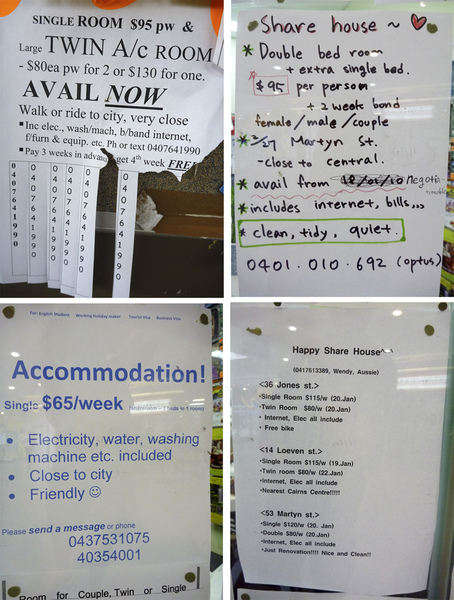 SINGLE ROOM $95 pw &
Large TWIN A/c ROOM
- $80ea pw for 2 or $130 for one.
AVAIL NOW
Walk or ride to city, very close
▪Inc elec., wash/mach, b/band internet,
f/furn & equip. etc. Ph or text 0407641990
▪Pay 3 weeks in advan get 4th week FREE
0407641990
0407641990
0407641990
0407641990
0407641990
Share house ~ ♡
* Double bed room
+ extra single bed.
$95 per person
+ 2 week bond
female/male/couple
* 2/27 Martyn St.
- close to central.
* avail from Negotia
* includes internet, bills,,,
* clean, tidy, quiet.
0401.010.692 (optus)
For: English Student Working Holiday maker Tourist Visa Business Visa
Accommodation!
Single $65/week
• Electricity, water, washing
machine etc. included
• Close to city
• Friendly ☺
Please send a message or phone
0437531075
40354001
Room for Couple, Twin or Single
Happy Share House^^
(0417613389, Wendy, Aussie)
<36 Jones st.>
•Single Room $115/w (20.Jan)
•Twin Room $80/w (20.Jan)
• Internet, Elec all include
• Free bike
<14 Loeven st.>
•Single Room $115/w (19.Jan)
•Twin room $80/w (22.Jan)
•Internet, Elec all include
•Nearest Cairns Centre!!!!!
<53 Martyn st.>
•Single $120/w (20. Jan)
•Double $80/w (20.Jan)
•Internet, Elec all include
•Just Renovation!!!! Nice and Clean!!